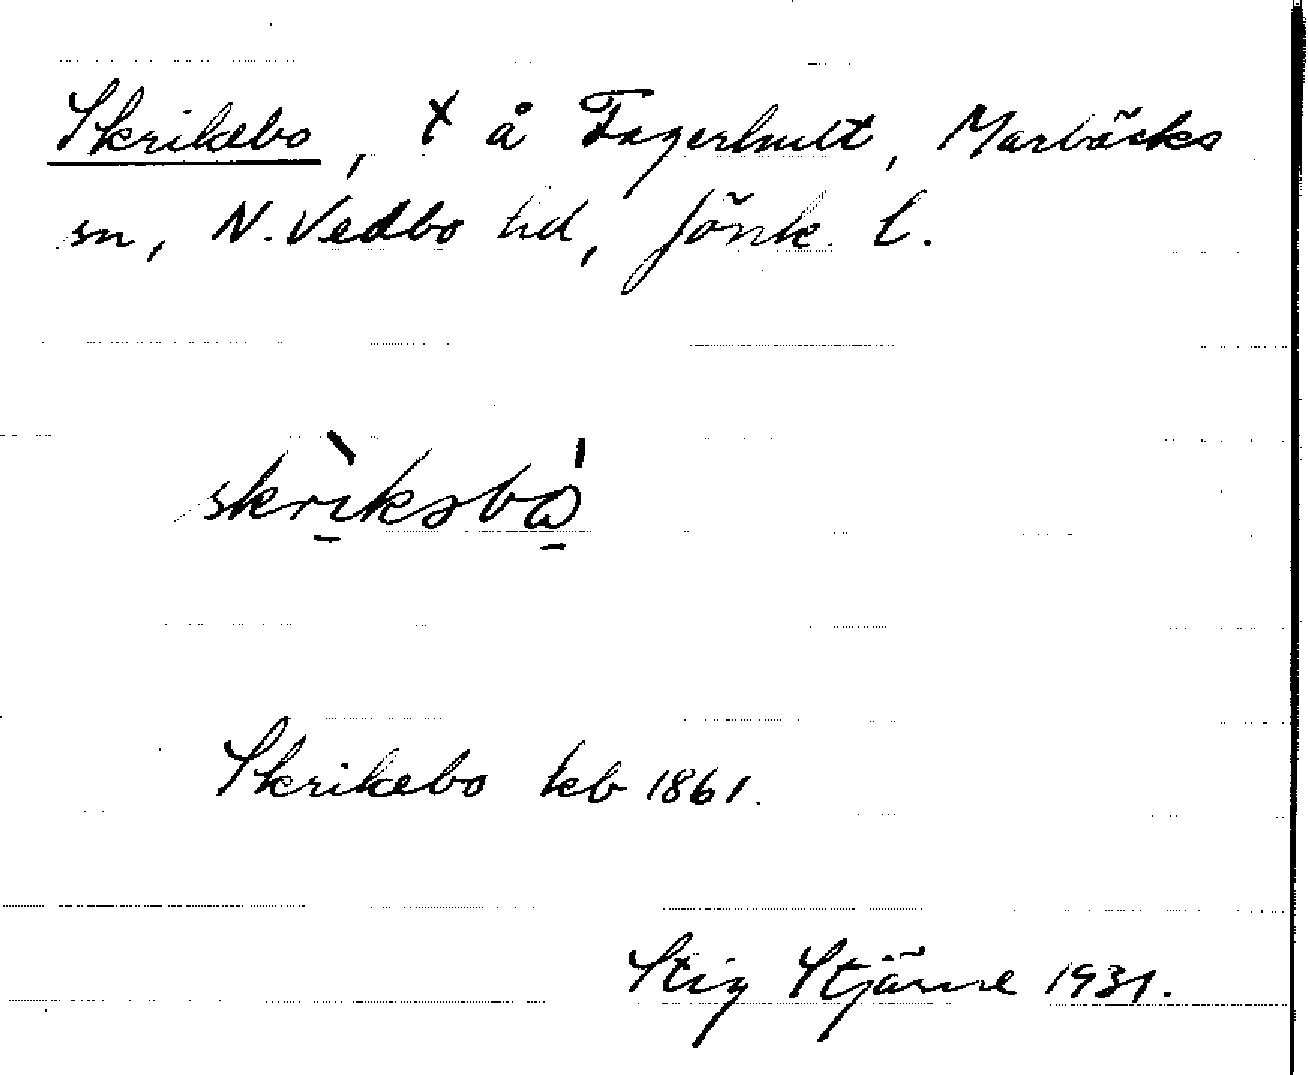 Skrikebo, x å Fagerhult, Marbäcks
sn, N. Vedbo hd, Jönk. l.
skrìkəbó
Skrikebo kb 1861.
Stig Stjärne 1931.